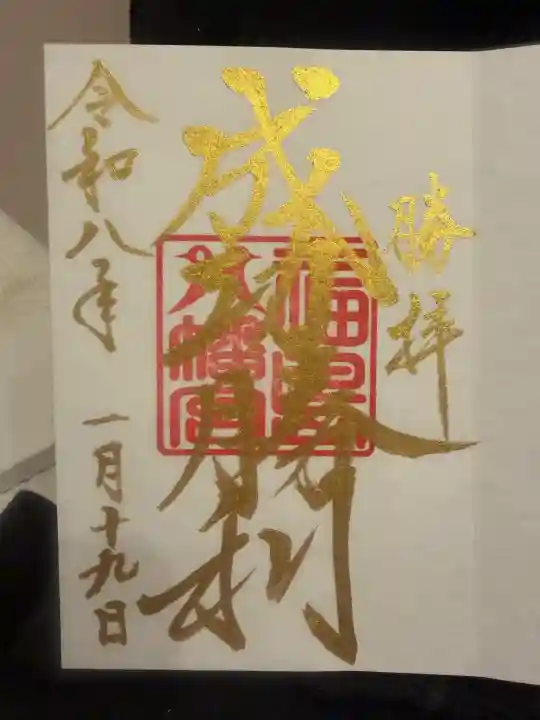 勝拝
成功勝利
福
八幡宮
令和八年 一月十九日